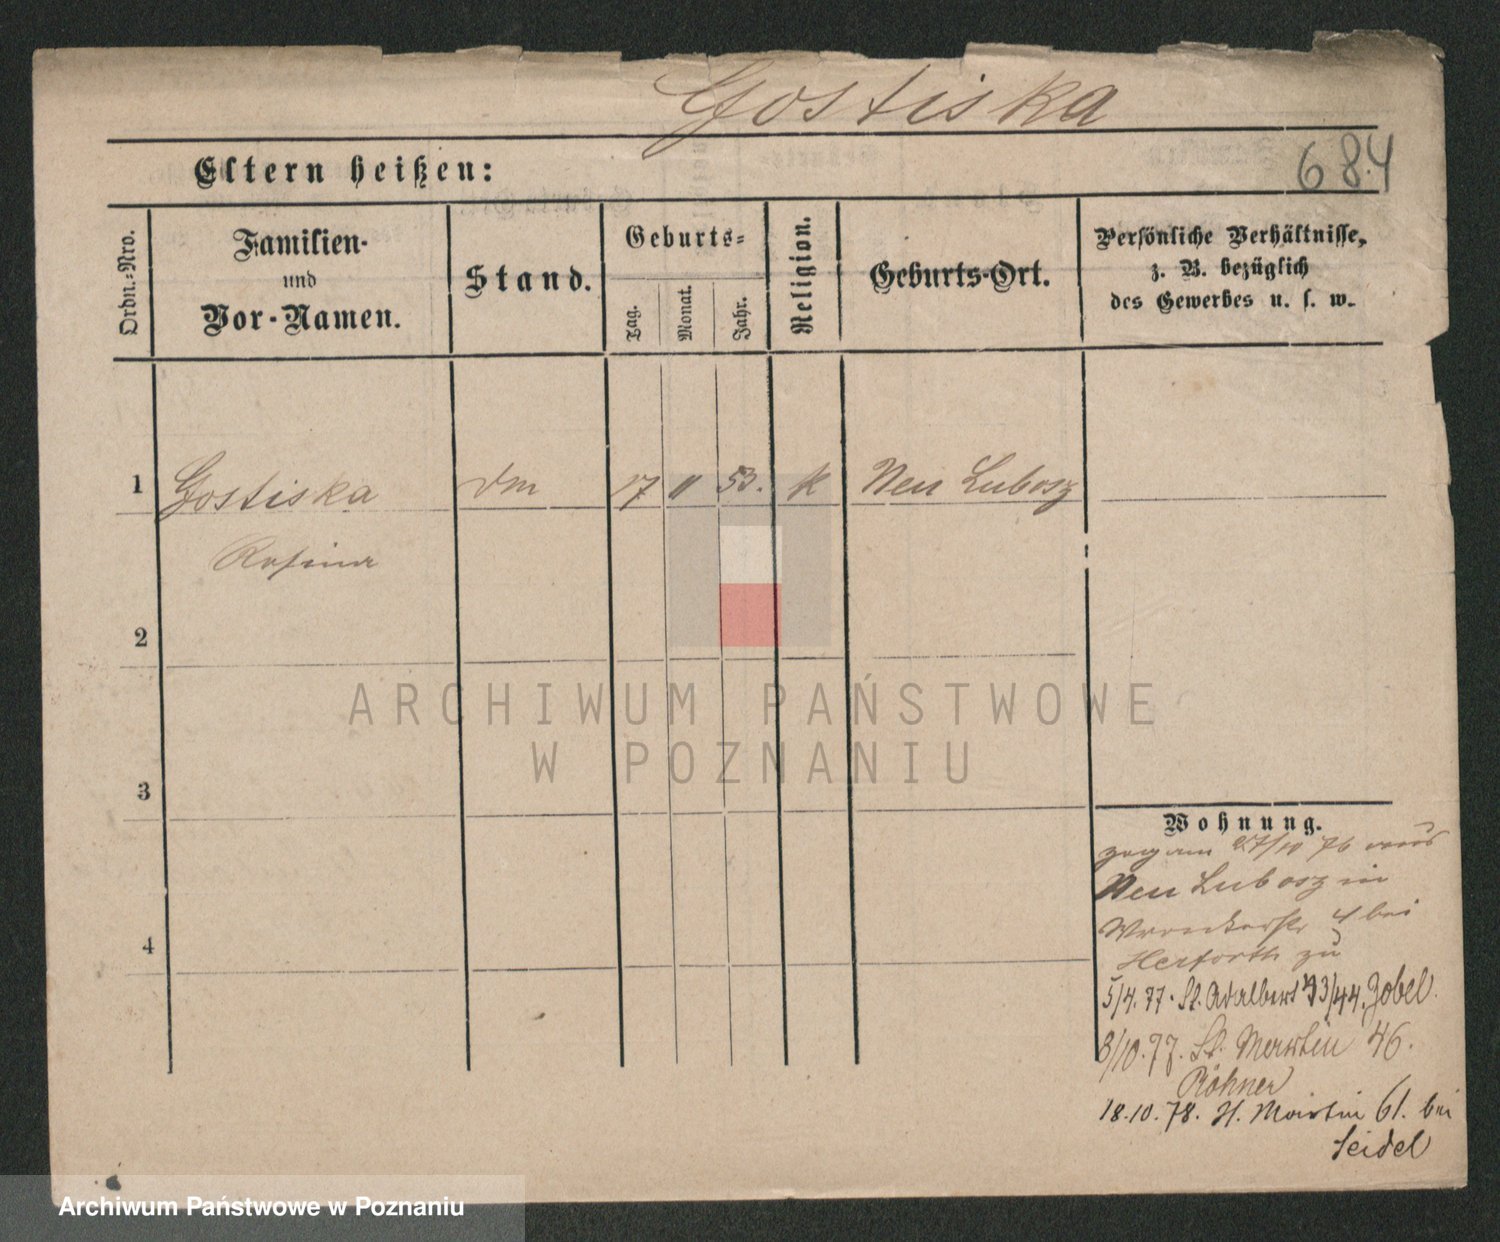 Gostiska
684
Eltern heißen:
Ordn.-Nro.
Familien-
und
Vor-Namen.
Stand.
Geburts-
Tag.
Monat.
Jahr.
Religion.
Geburts-Ort.
Persönliche Verhältnisse,
z. B. bezüglich
des Gewerbes u. s. w.
1 Gostiska dm 17 11 53. k Neu Lubosz
Rosina
2
3
4
Wohnung.
zog am 27/10 76 aus
Neu Lubosz in
Wronkerstr 4 bei
Herforth zu
5/4.77. St. Adalbert 43/44. Zobel.
3/10.77. St. Martin 46.
Röhner
18.10.78. St. Martin 61. bei
Seidel
ARCHIWUM PAŃSTWOWE
W POZNANIU
Archiwum Państwowe w Poznaniu